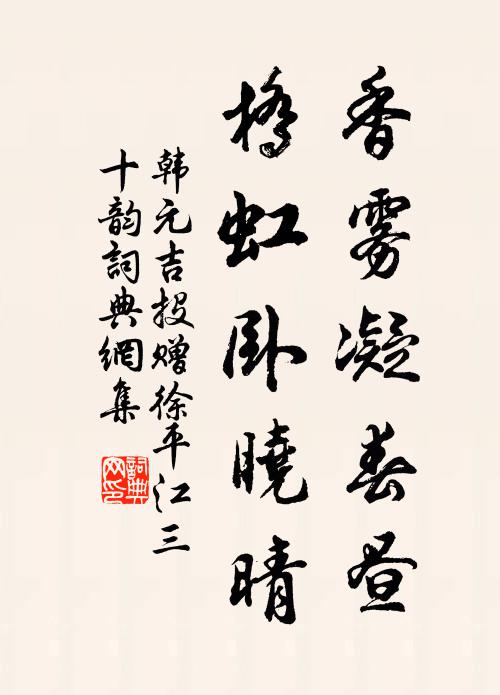 香雾凝春昼
橋虹卧曉晴
韩元吉投赠徐平江三
十韵詞典網集
詞典
网印